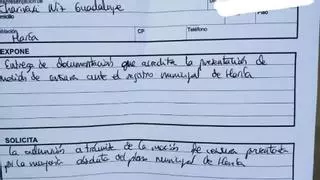 Chanivari Wiz Guadalupe
Domicilio
Población
CP
Teléfono
María
EXPONE
Entrega de documentación que acredita la presentación de
moción de censura ante el registro municipal de María
SOLICITA
la admisión a trámite de la moción de censura presentada
por la mayoría absoluta del pleno municipal de María